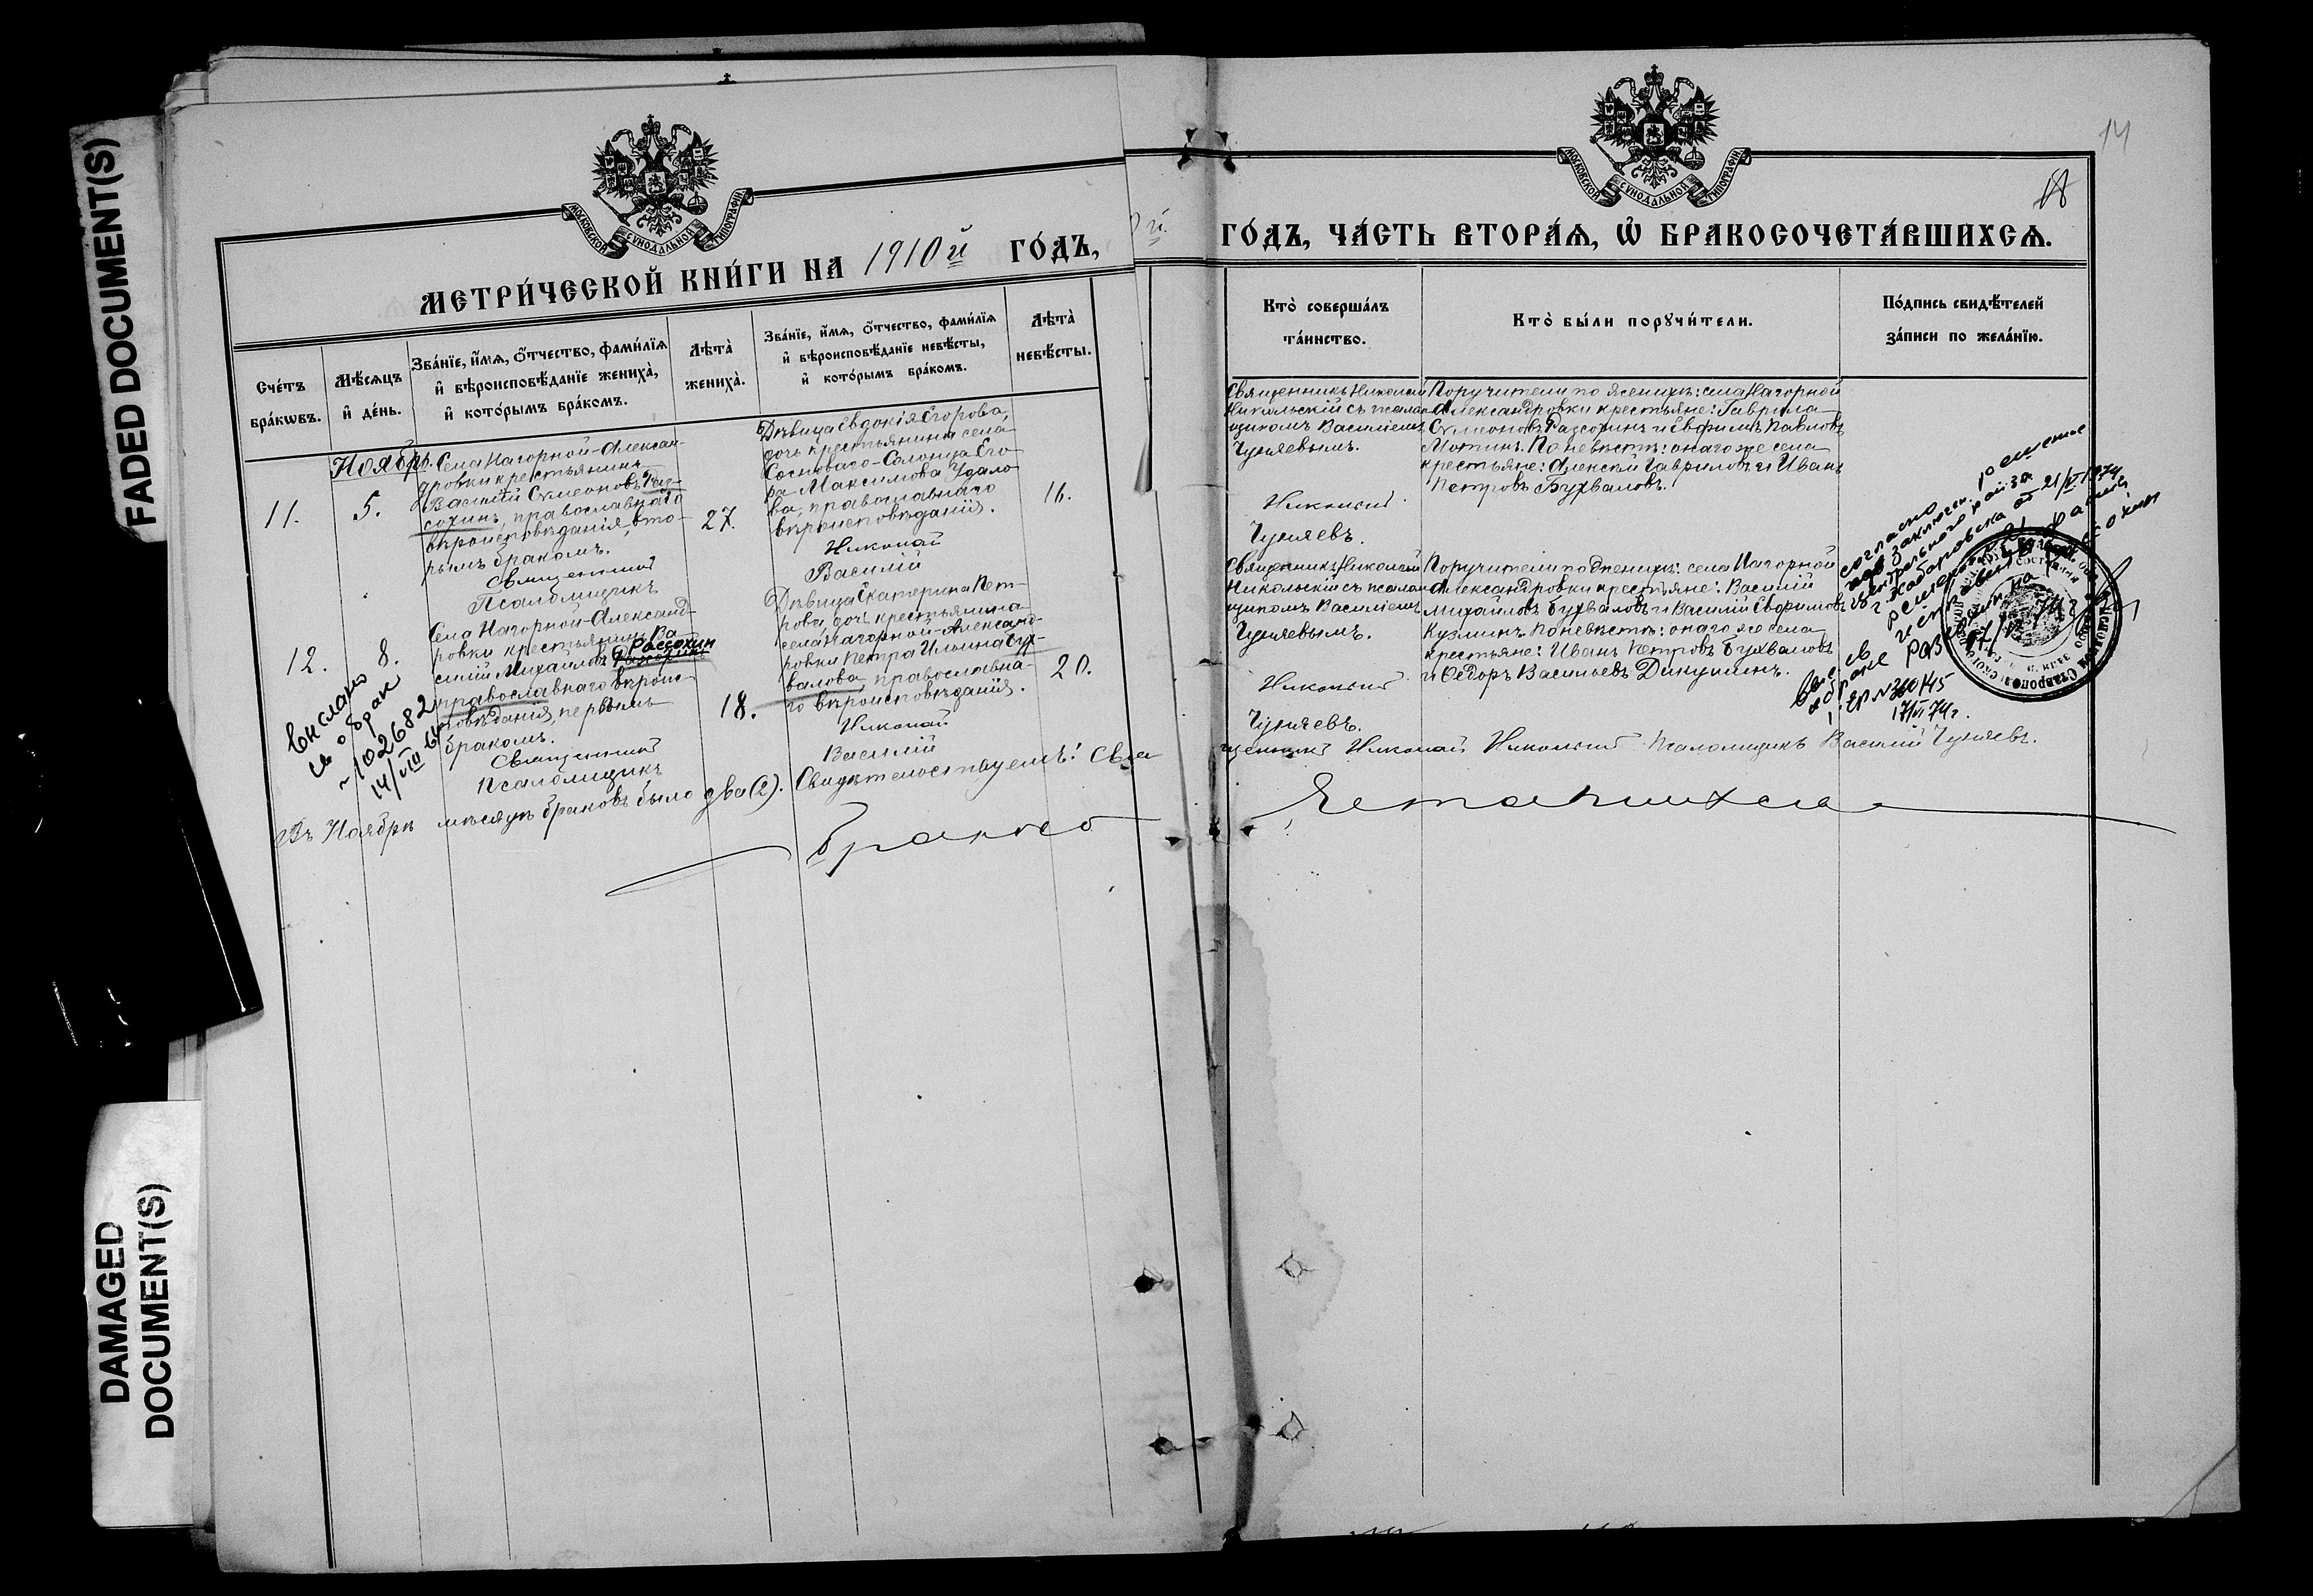 FADED DOCUMENT(S)
DAMAGED
DOCUMENT(S)
МОСКОВСКОЙ СѴНОДАЛЬНОЙ ТИПОГРАФІИ
МЕТРИ́ЧЕСКОЙ КНИ́ГИ НА 1910й ГО́ДЪ,
Сче́тъ
бра́кѡвъ.
Мѣ́сѧцъ
и҆ де́нь.
Зва́нїе, и҆́мѧ, ѻ҆́тчество, фами́лїѧ
и҆ вѣроисповѣ́данїе жениха̀,
и҆ кото́рымъ бра́комъ.
Лѣта̀
жениха̀.
Зва́нїе, и҆́мѧ, ѻ҆́тчество, фами́лїѧ
и҆ вѣроисповѣ́данїе невѣ́сты,
и҆ кото́рымъ бра́комъ.
Лѣта̀
невѣ́сты.
Ноябрь.
11.
5.
Села Нагорной-Алексан-
дровки крестьянинъ
Василій Сѵмеоновъ Раз-
сохинъ, православнаго
вѣроисповѣданія, вто-
рымъ бракомъ.
Священникъ
Псаломщикъ
27.
Дѣвица Евдокія Егорова,
дочь крестьянина села
Сосноваго-Солонца Его-
ра Максимова Удало-
ва, православнаго
вѣроисповѣданія.
Николай
Василій
16.
12.
8.
Села Нагорной-Александ-
ровки крестьянинъ Ва-
силій Михайловъ Рассохин
православнаго вѣроис-
повѣданія, первымъ
бракомъ.
Священникъ
Псаломщикъ
18.
Дѣвица Екатерина Пет-
рова, дочь крестьянина
села Нагорной-Александ-
ровки Петра Ильина Бух-
валова, православна-
го вѣроисповѣданія.
Николай
Василій
20.
выслано
св о браке
102682
14/VIII
Въ Ноябрѣ мѣсяцѣ браковъ было два (2). Свидѣтельствуемъ: Свя
Бракосо
14
МОСКОВСКОЙ СѴНОДАЛЬНОЙ ТИПОГРАФІИ
ГО́ДЪ, ЧА́СТЬ ВТОРА́Ѧ, Ѡ҆ БРАКОСОЧЕТА́ВШИХСѦ.
Кто̀ соверша́лъ
та́инство.
Кто̀ бы́ли порꙋчи́тели.
По́дпись свидѣ́телей
за́писи по жела́нїю.
Священникъ Николай
Никольскій съ псалом-
щикомъ Василіемъ
Чуняевымъ.
Никольскій
Чуняевъ.
Поручители по женихѣ: села Нагорной
Александровки крестьяне: Гаврила
Сѵмеоновъ Разсохинъ и Евфимъ Павловъ
Мотинъ. По невѣстѣ: онаго же села
крестьяне: Алексѣй Гавриловъ и Иванъ
Петровъ Бухваловъ.
Священникъ Николай
Никольскій съ псалом-
щикомъ Василіемъ
Чуняевымъ.
Никольскій
Чуняевъ.
Поручители по женихѣ: села Нагорной
Александровки крестьяне: Василій
Михайловъ Бухваловъ и Василій Евфимовъ
Кузминъ. По невѣстѣ: онаго же села
крестьяне: Иванъ Петровъ Бухваловъ
и Ѳедоръ Васильевъ Дикушинъ.
согласно
г. Хабаровска от 21/VI 1974
17/VI 74г.
щенникъ Николай Никольскій Псаломщикъ Василій Чуняевъ.